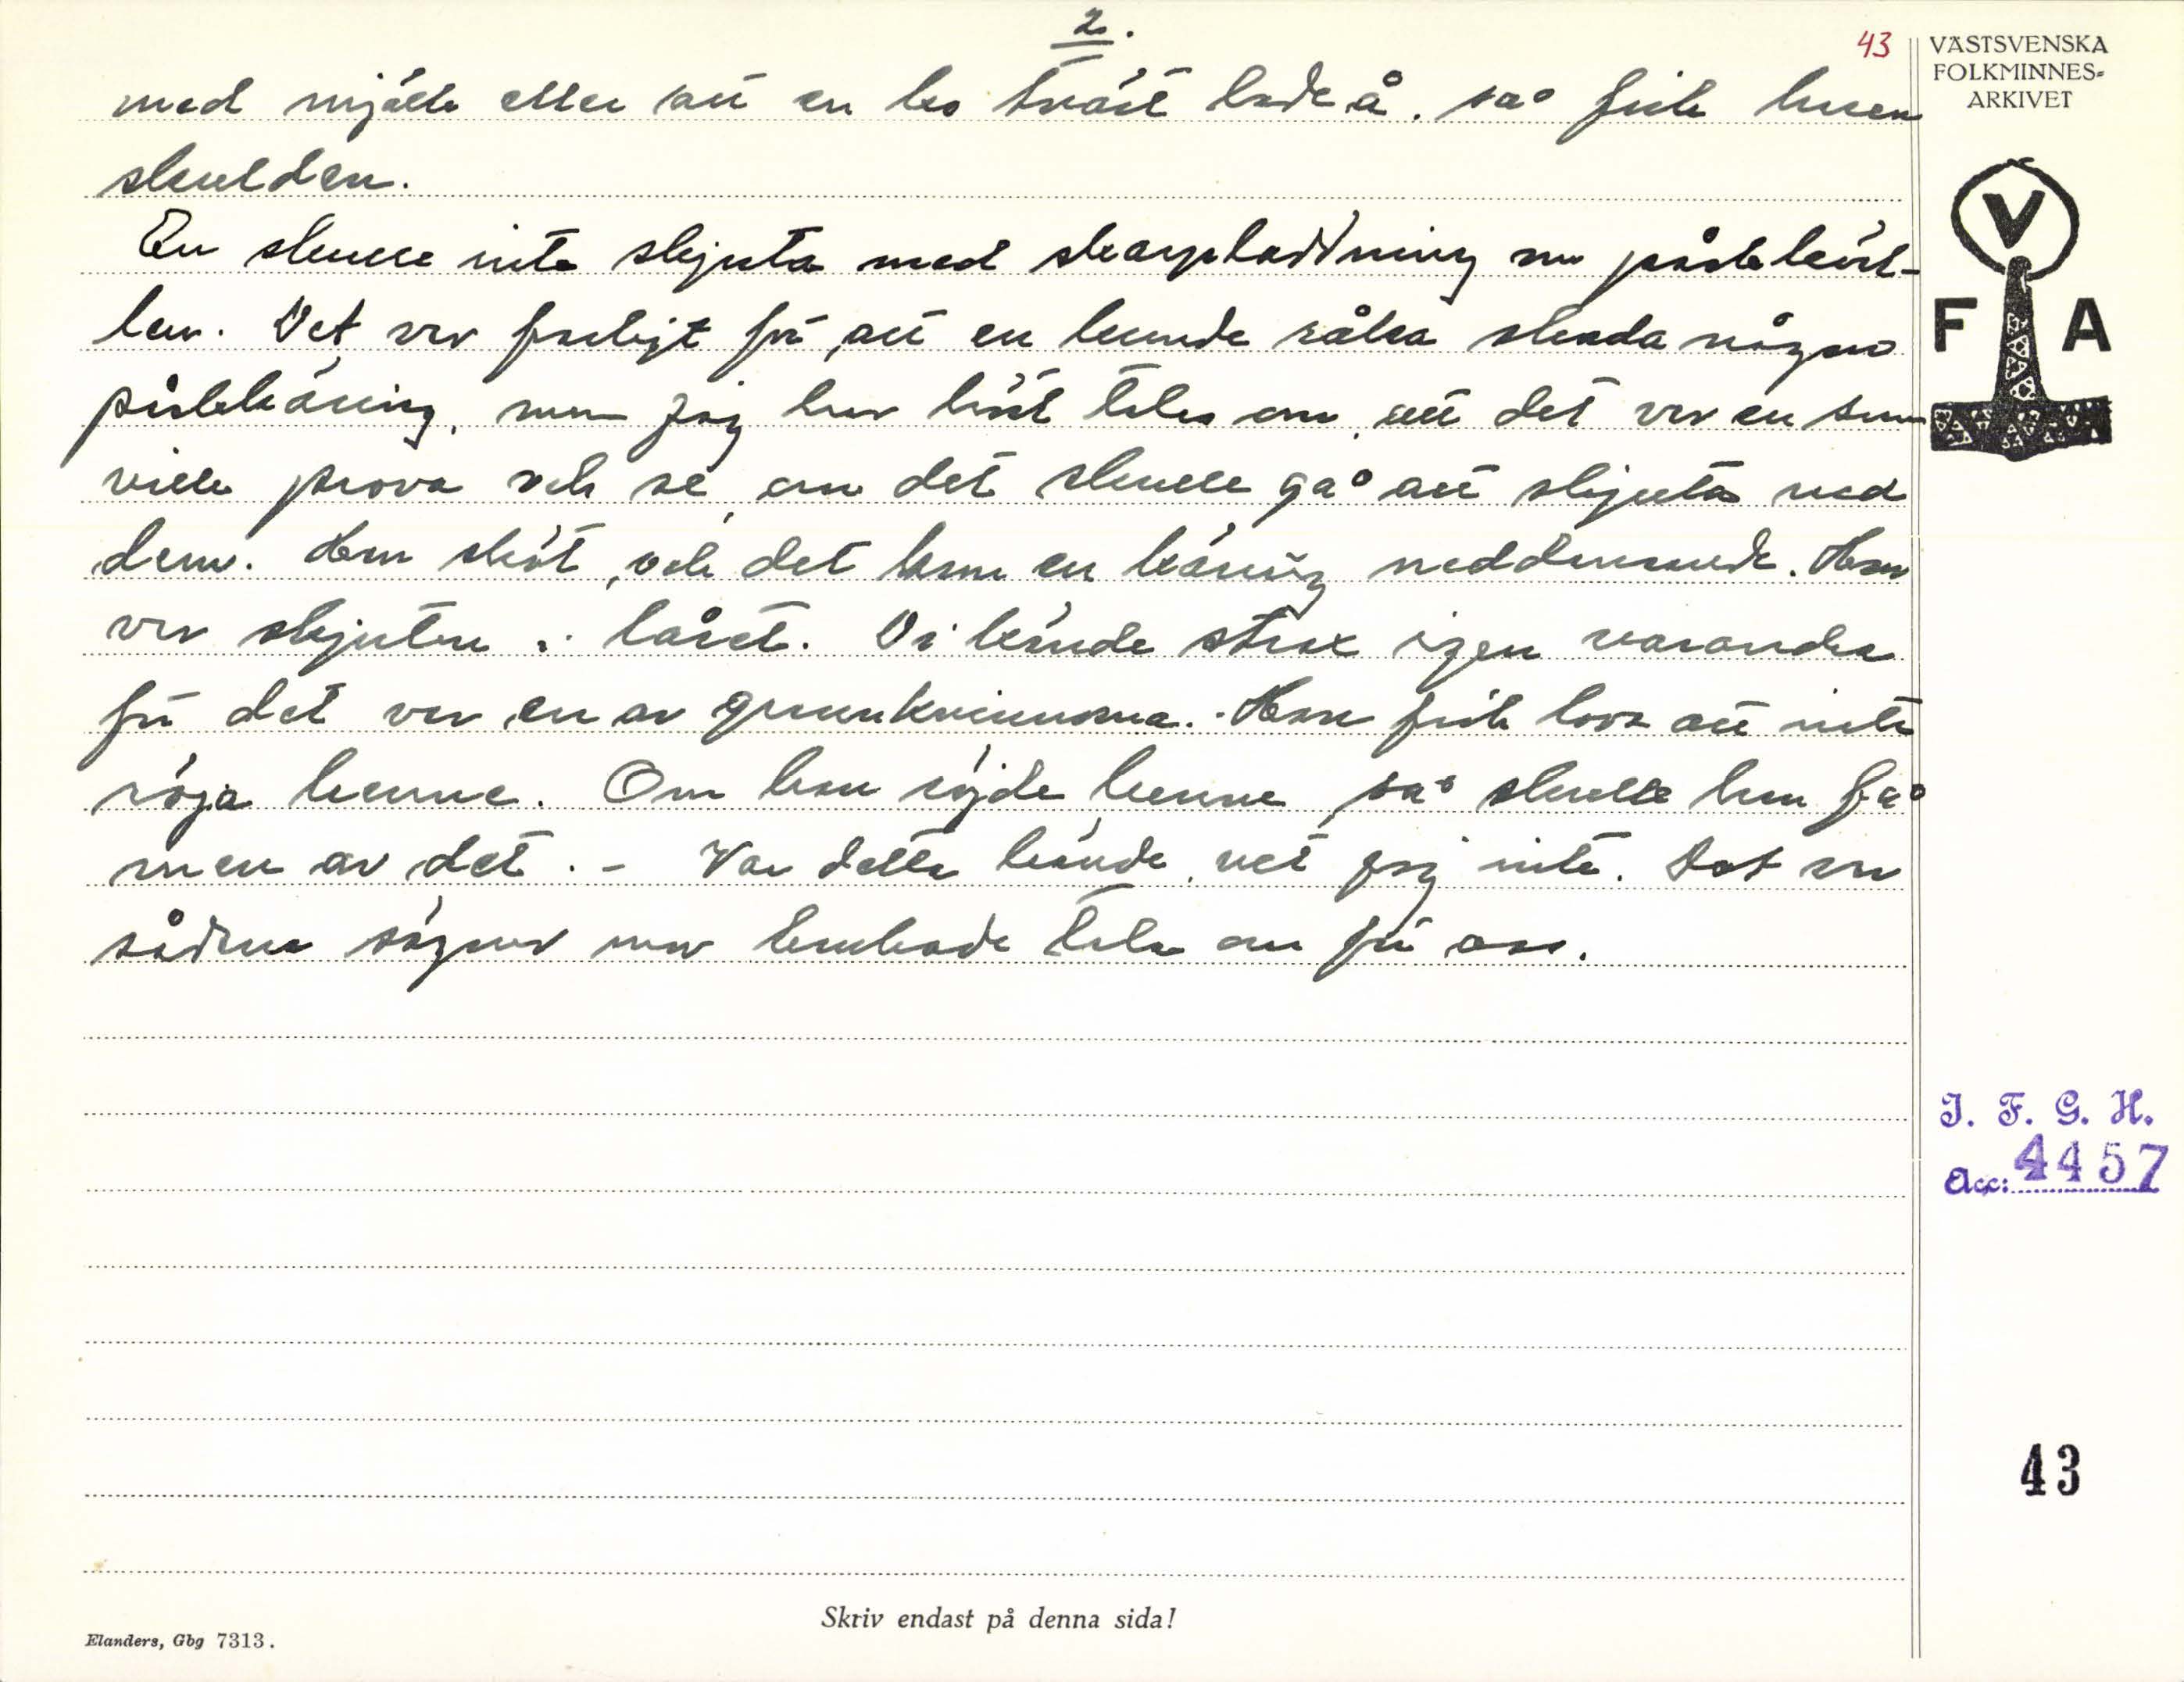 2.
43
VÄSTSVENSKA
FOLKMINNES-
ARKIVET
med mjölk eller att en ko tvärt lade å, så fick husen
skulden.
En skulle inte skjuta med skarpladdning om påskkväl-
len. Det var farligt för, att en kunde råka skada någon
påskkäring, men jag har hört talas om, att det var en som
ville prova och se, om det skulle gå att skjuta ned
dem. Han sköt, och det kom en käring neddunsande. Hon
var skjuten i låret. Di kände strax igen varandra
för det var en av grannkvinnorna. Han fick lova att inte
röja henne. Om han röjde henne, så skulle han få
men av det. - Var detta hände, vet jag inte. Det var
sådana sägner man brukade tala om för oss.
V
F A
I. F. G. H.
Acc: 4457
43
Skriv endast på denna sida!
Elanders, Gbg 7313.